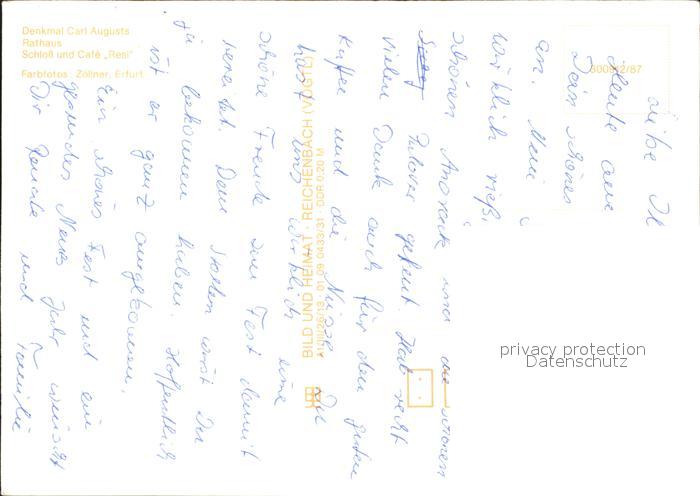 Denkmal Carl Augusts
Rathaus
Schloß und Café „Resi"
Farbfotos: Zöllner, Erfurt
BILD UND HEIMAT REICHENBACH (VOGTL)
A1/III/26/13 01 09 0433/31 DDR 0,20 M
300912/87
Liebe
Heute am
Dein schönes
an. Mein
wirklich riesig
schönen Anorack und die schönen
Pulover gefreut. Hab recht
vielen Dank auch für den guten
Kaffee und die Nüsse. Du
hast uns wirklich eine
schöne Freude zum Fest damit
bereitet. Den Stollen wirst Du
ja bekommen haben. Hoffentlich
ist er ganz angekommen.
Ein schönes Fest und ein
gesundes Neues Jahr wünscht
Dir Renate und Familie
privacy protection
Datenschutz